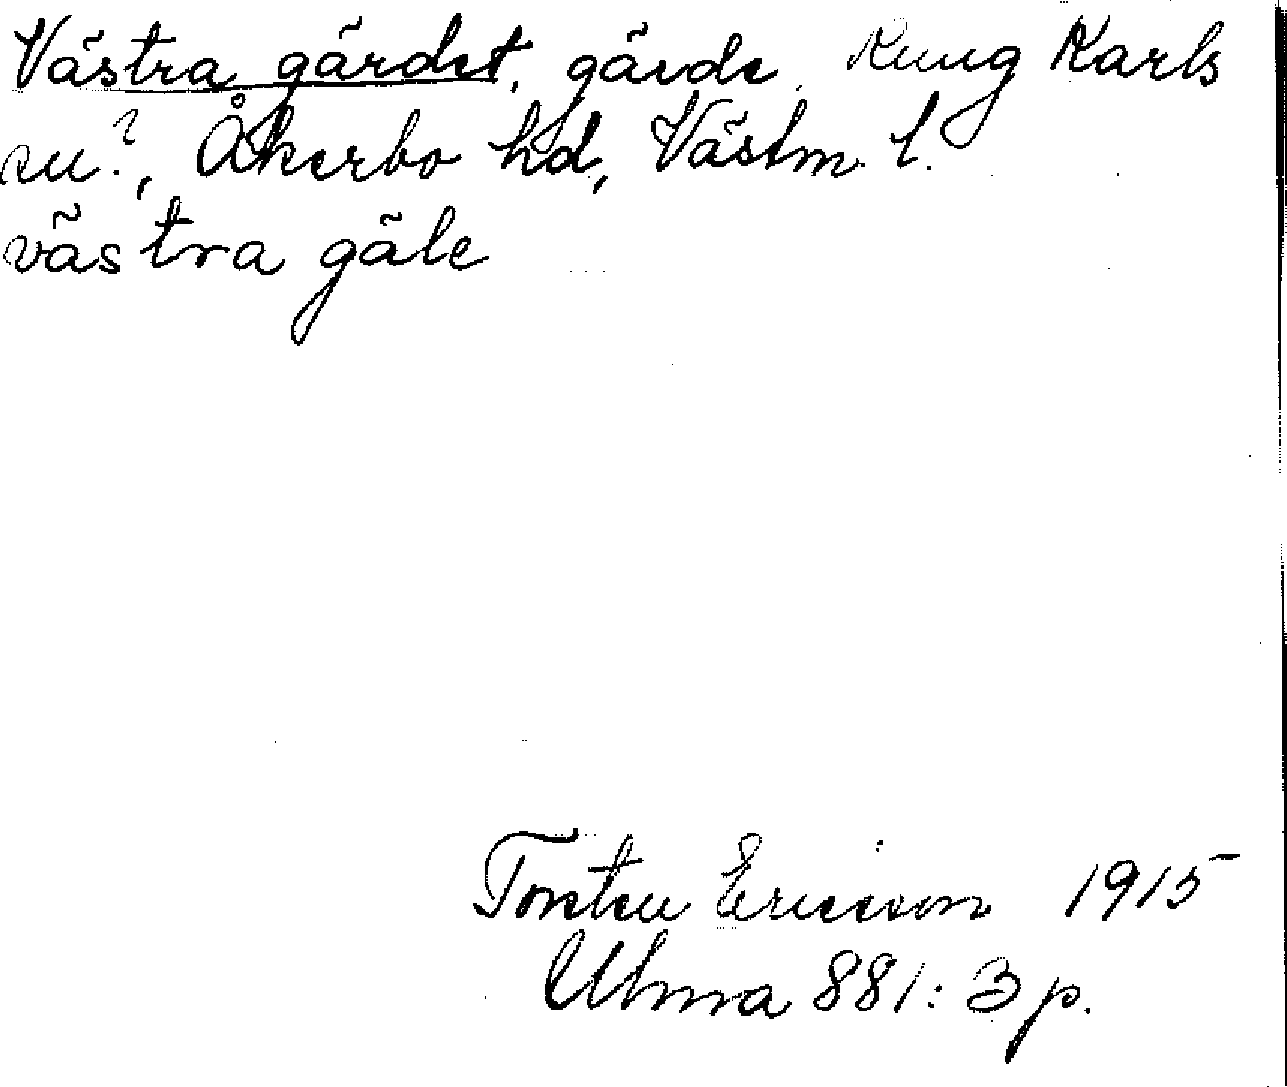 Västra gärdet, gärde. Kung Karls
su?, Åkerbo hd, Västm. l.
västra gäle
Torsten Ericsson 1915
Ulma 881: 3 p.